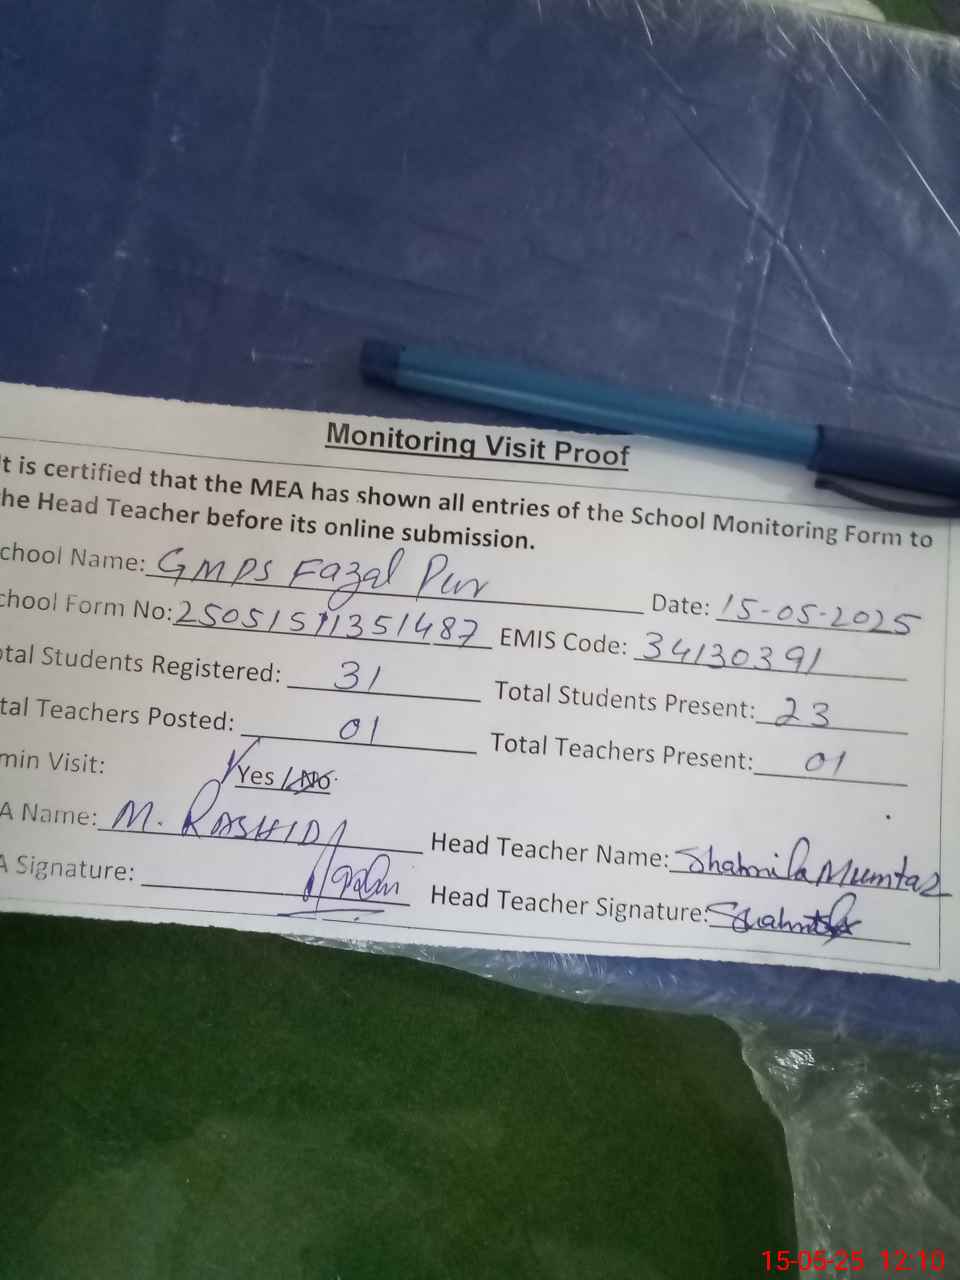 Monitoring Visit Proof
t is certified that the MEA has shown all entries of the School Monitoring Form to
he Head Teacher before its online submission.
chool Name: GMPS Fazal Pur Date: 15-05-2025
chool Form No: 25051511351487 EMIS Code: 34130391
otal Students Registered: 31 Total Students Present: 23
tal Teachers Posted: 01 Total Teachers Present: 01
min Visit: Yes / No
A Name: M. RASHID Head Teacher Name: Shahmila Mumtaz
A Signature: Head Teacher Signature:
15-05-25 12:10